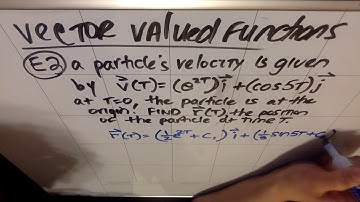 VECTOR VALUED FUNCTIONS
E2 a particle's velocity is given
by v⃗(T) = (e²ᵀ)i⃗ + (cos5T)j⃗
at T=0, the particle is at the
origin. FIND r⃗(T) the position
of the particle at time T.
r⃗(T) = (½e²ᵀ + C₁)i⃗ + (⅕ sin5T + C₂